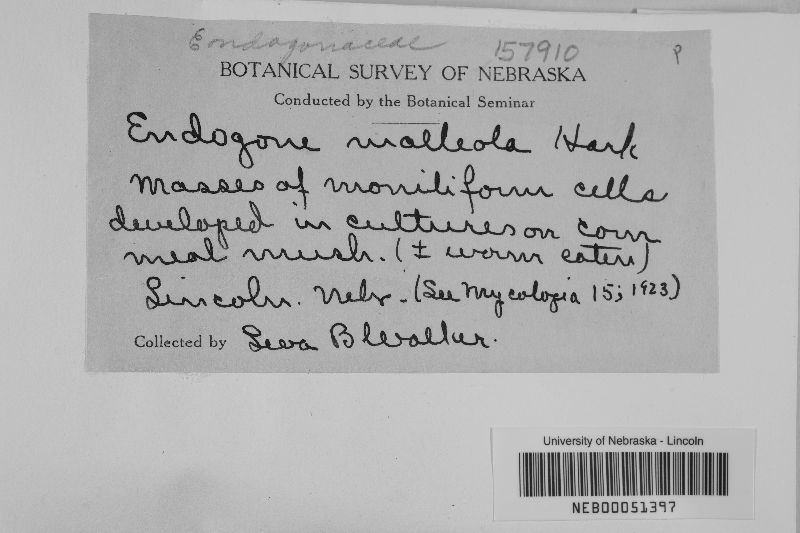 Endogonaceae 157910 P
BOTANICAL SURVEY OF NEBRASKA
Conducted by the Botanical Seminar
Endogone malleola Hark
Masses of moniliform cells
developed in cultures on corn
meal mush. (± worm eaten)
Lincoln. Nebr. (See Mycologia 15; 1923)
Collected by Leva B Walker.
University of Nebraska - Lincoln
NEB00051397